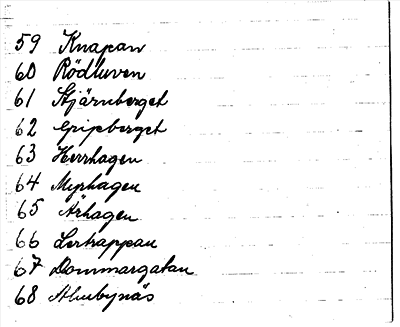 59 Knapan
60 Rödluvan
61 Stjärnberget
62 Gripsberget
63 Herrhagen
64 Myrhagen
65 Århagen
66 Lertrappan
67 Dommargatan
68 Almbynäs